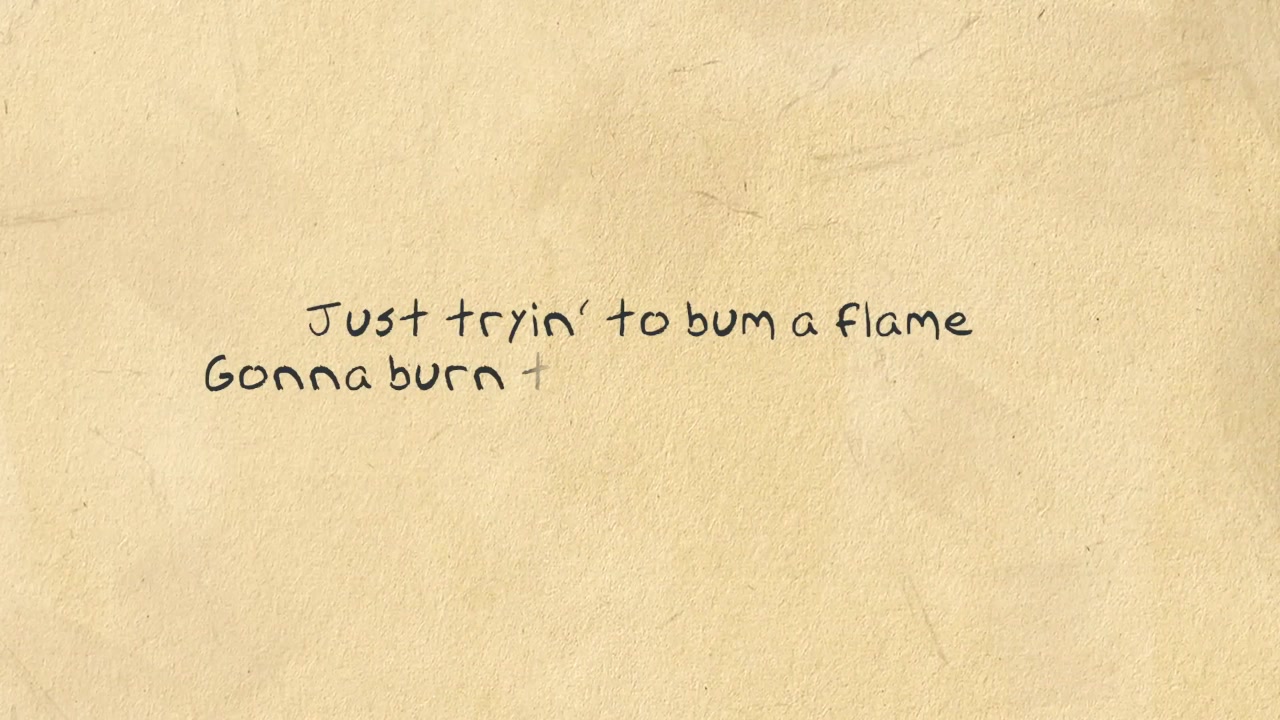 Just tryin' to bum a flame
Gonna burn t